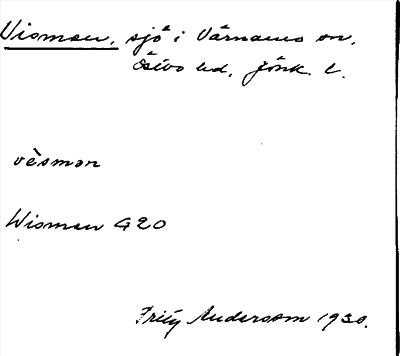 Visman, sjö i Värnamo sn,
Östbo hd, Jönk. l.
vèsmən
Wisman G20
Fritz Anderson 1930.